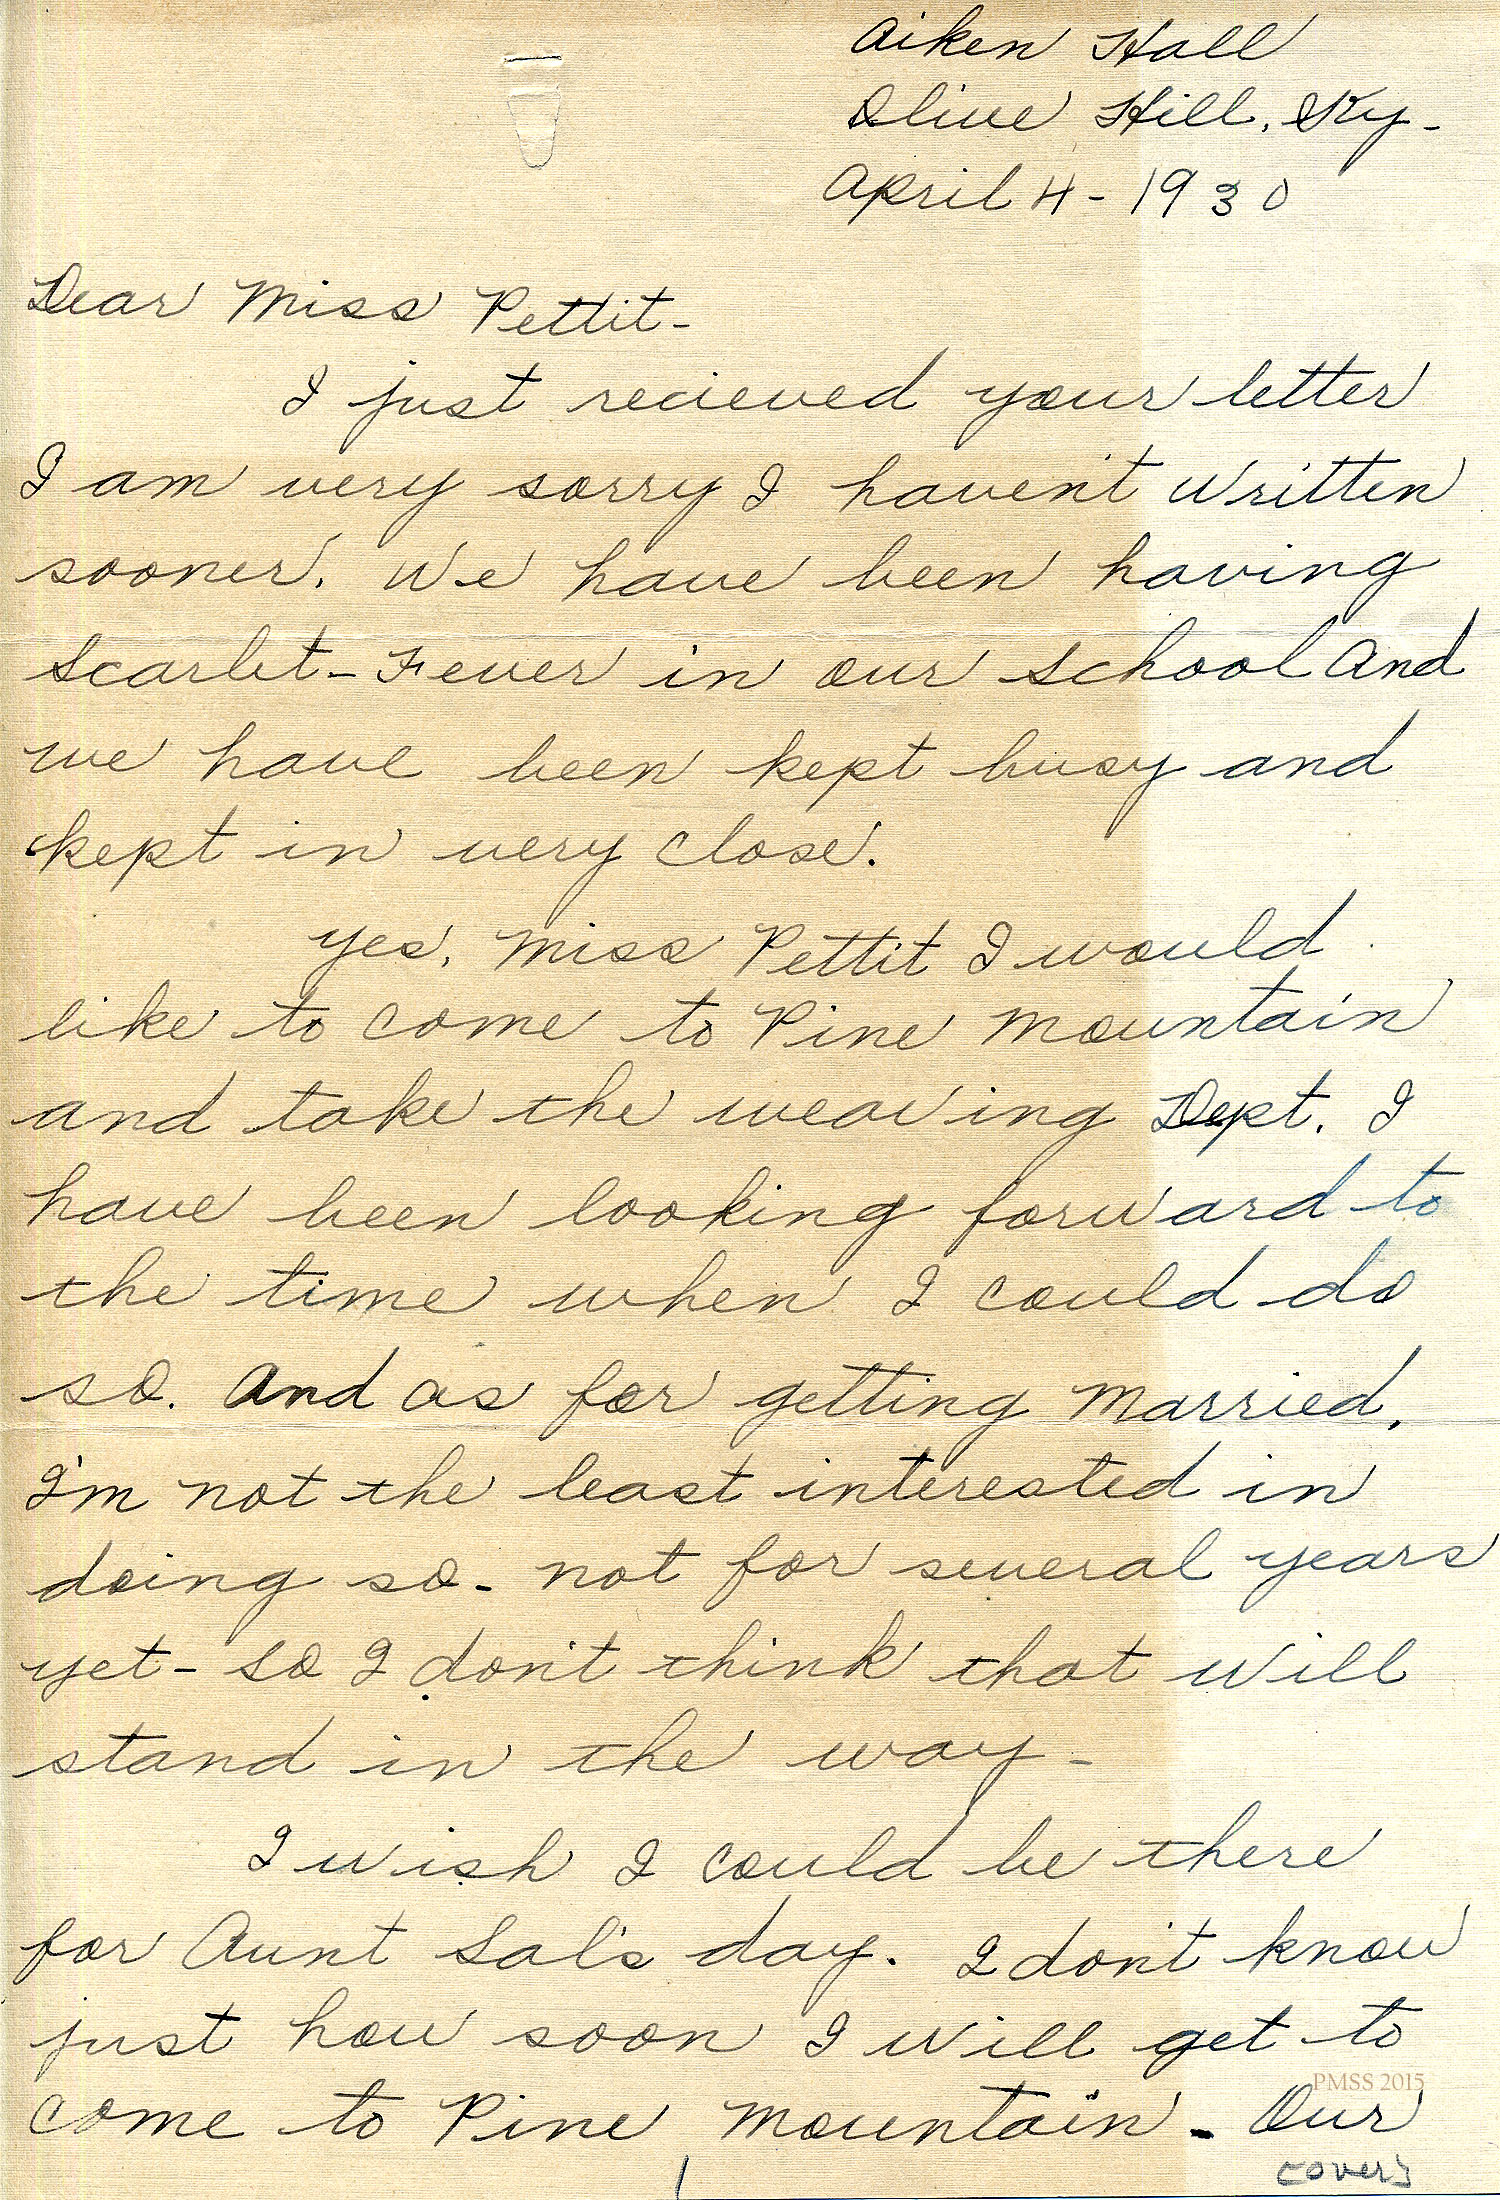 Aiken Hall
Olive Hill, Ky-
April 4-1930
Dear Miss Pettit-
I just recieved your letter
I am very sorry I haven't written
sooner. We have been having
Scarlet-Fever in our school And
we have been kept busy and
kept in very close.
Yes, Miss Pettit I would
like to come to Pine Mountain
and take the weaving Dept. I
have been looking forward to
the time when I could do
so. And as for getting married,
I'm not the least interested in
doing so- not for several years
yet- so I don't think that will
stand in the way-
I wish I could be there
for Aunt Sal's day. I don't know
just how soon I will get to
come to Pine Mountain- Our
PMSS 2015
(over)